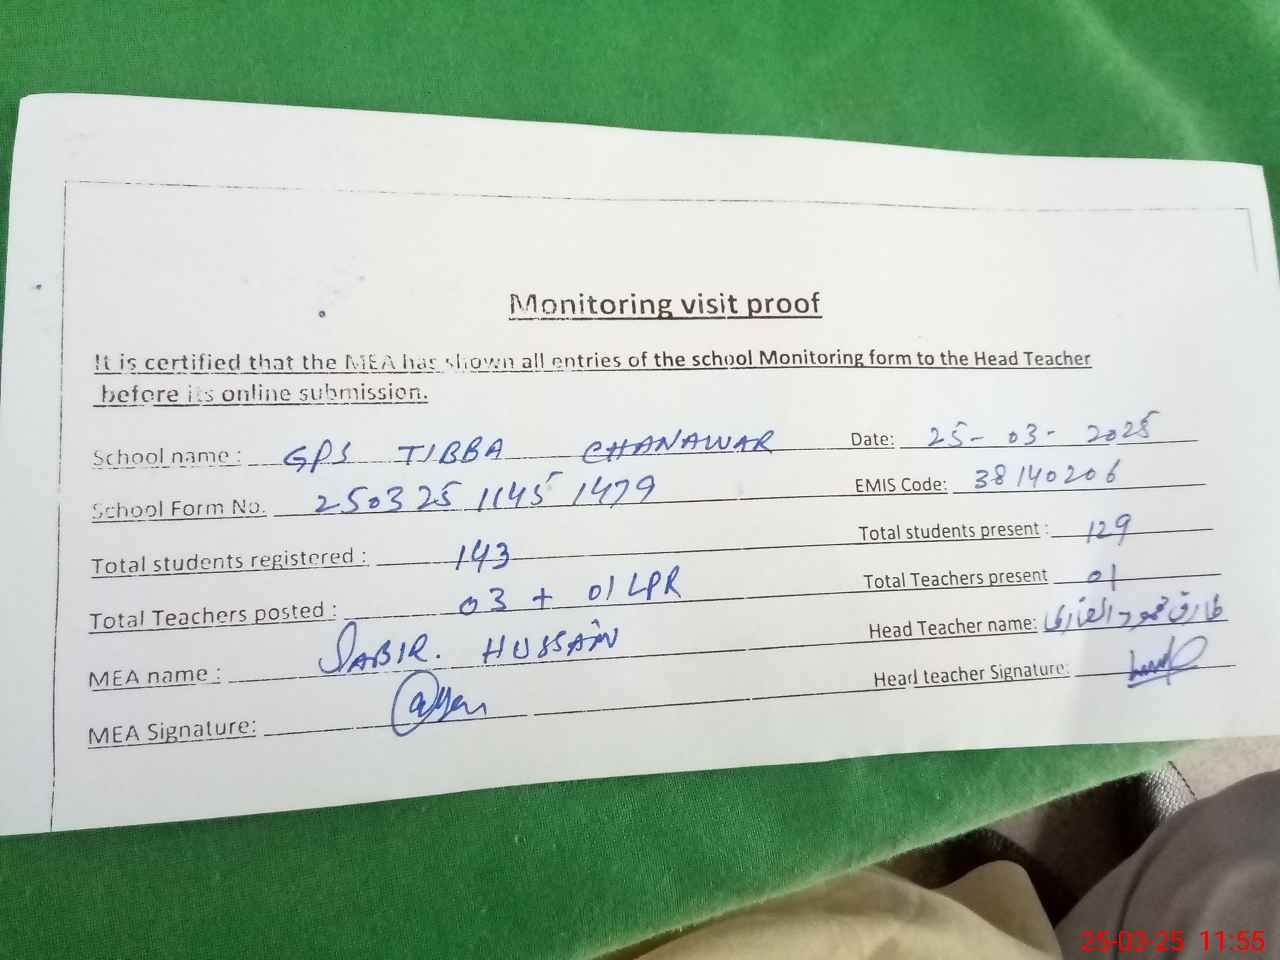 Monitoring visit proof
It is certified that the MEA has shown all entries of the school Monitoring form to the Head Teacher
before its online submission.
School name : GPS TIBBA CHANAWAR Date: 25-03-2025
School Form No. 250325 1145 1479 EMIS Code: 38140206
Total students registered : 143 Total students present : 129
Total Teachers posted : 03 + 01 LPR Total Teachers present 01
MEA name : SABIR. HUSSAIN Head Teacher name: طارق محمود
MEA Signature: Head teacher Signature:
25-03-25 11:55